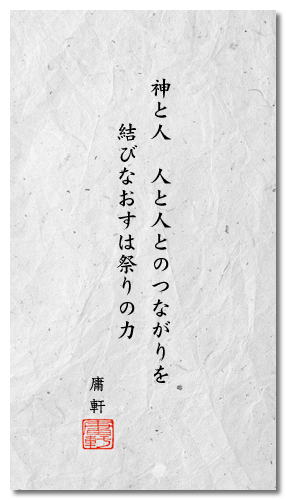 神と人　人と人とのつながりを
結びなおすは祭りの力
庸軒
庸軒